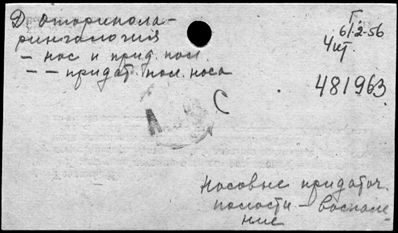 Д. оторинола-
рингология
— нос и прид. пол.
— — придат. пол. носа
Г
61:2-56
Чит
481963
А
С
Носовые придаточ.
полости — воспале-
ние